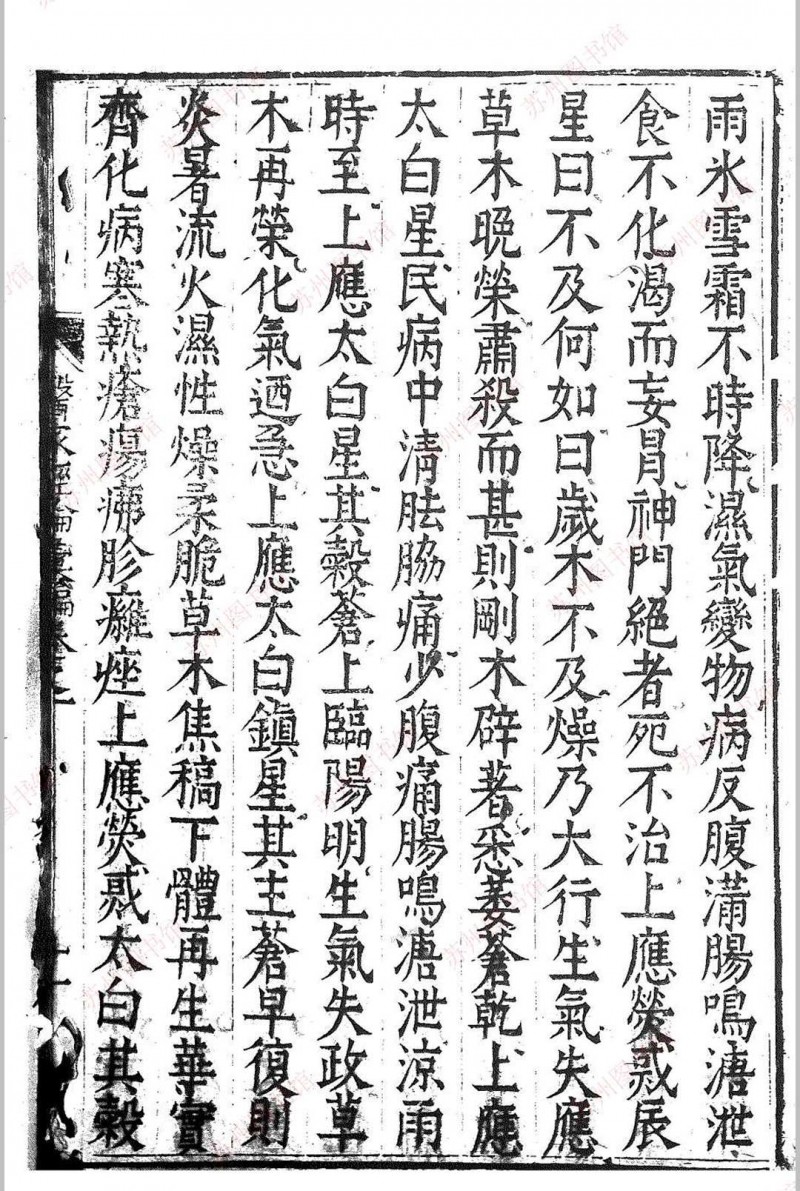 雨氷雪霜不時降濕氣變物病反腹滿腸鳴溏泄
食不化渴而妄冒神門絕者死不治上應熒惑辰
星曰不及何如曰歲木不及燥乃大行生氣失應
草木晚榮肅殺而甚則剛木辟著悉萎蒼乾上應
太白星民病中清胠脇痛少腹痛腸鳴溏泄涼雨
時至上應太白星其穀蒼上臨陽明生氣失政草
木再榮化氣迺急上應太白鎮星其主蒼早復則
炎暑流火濕性燥柔脆草木焦稿下體再生華實
齊化病寒熱瘡瘍疿胗癰痤上應熒惑太白其穀
蘇州图书馆